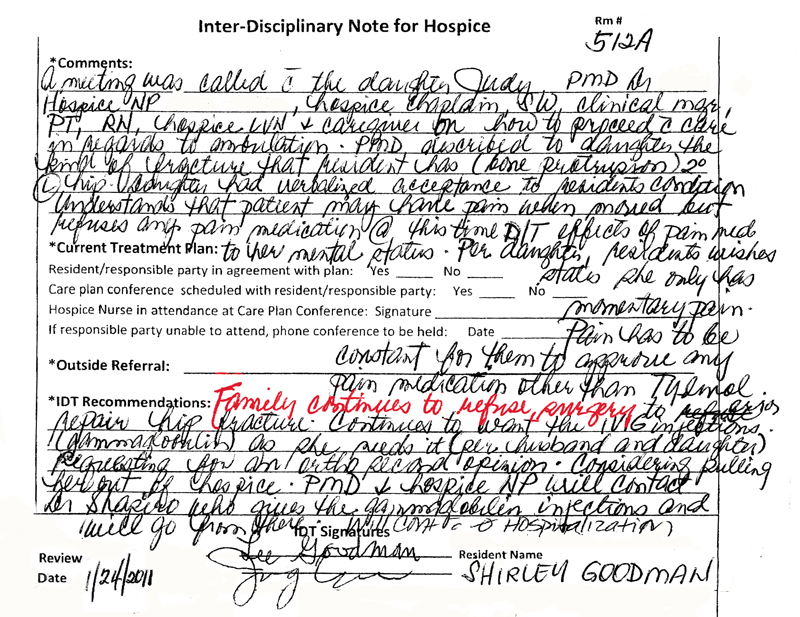 Inter-Disciplinary Note for Hospice
Rm #
512A
*Comments:
A meeting was called c̄ the daughter Judy, PMD Dr
Hospice NP , Hospice Chaplain, SW, clinical mgr,
PT, RN, Hospice LVN & caregiver on how to proceed c̄ care
in regards to ambulation. PMD described to daughter the
kind of fracture that resident has (bone protrusion) 2°
Ⓛ hip. Daughter had verbalized acceptance to residents condition
understands that patient may have pain when moved but
refuses any pain medication @ this time D/T effects of pain meds
*Current Treatment Plan: to her mental status. Per daughter, residents wishes
Resident/responsible party in agreement with plan: Yes ____ No ____ states she only has
Care plan conference scheduled with resident/responsible party: Yes ____ No ____
Hospice Nurse in attendance at Care Plan Conference: Signature momentary pain.
If responsible party unable to attend, phone conference to be held: Date Pain has to be
*Outside Referral: constant for them to approve any
pain medication other than Tylenol.
*IDT Recommendations: Family continues to refuse surgery to
repair hip fracture. Continues to want the IVIG injections.
(gammaglobulin) as she needs it (per husband and daughter)
Requesting for an ortho second opinion. Considering pulling
her out of hospice. PMD & hospice NP will contact
Dr Shapiro who gives the gammaglobulin injections and
will go from there. Will cont c̄ Hospitalization
IDT Signatures
Lee Goodman
Review
Date 1/24/2011
Resident Name
SHIRLEY GOODMAN